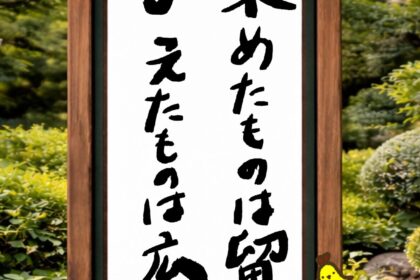 めたものは留
えたものは広